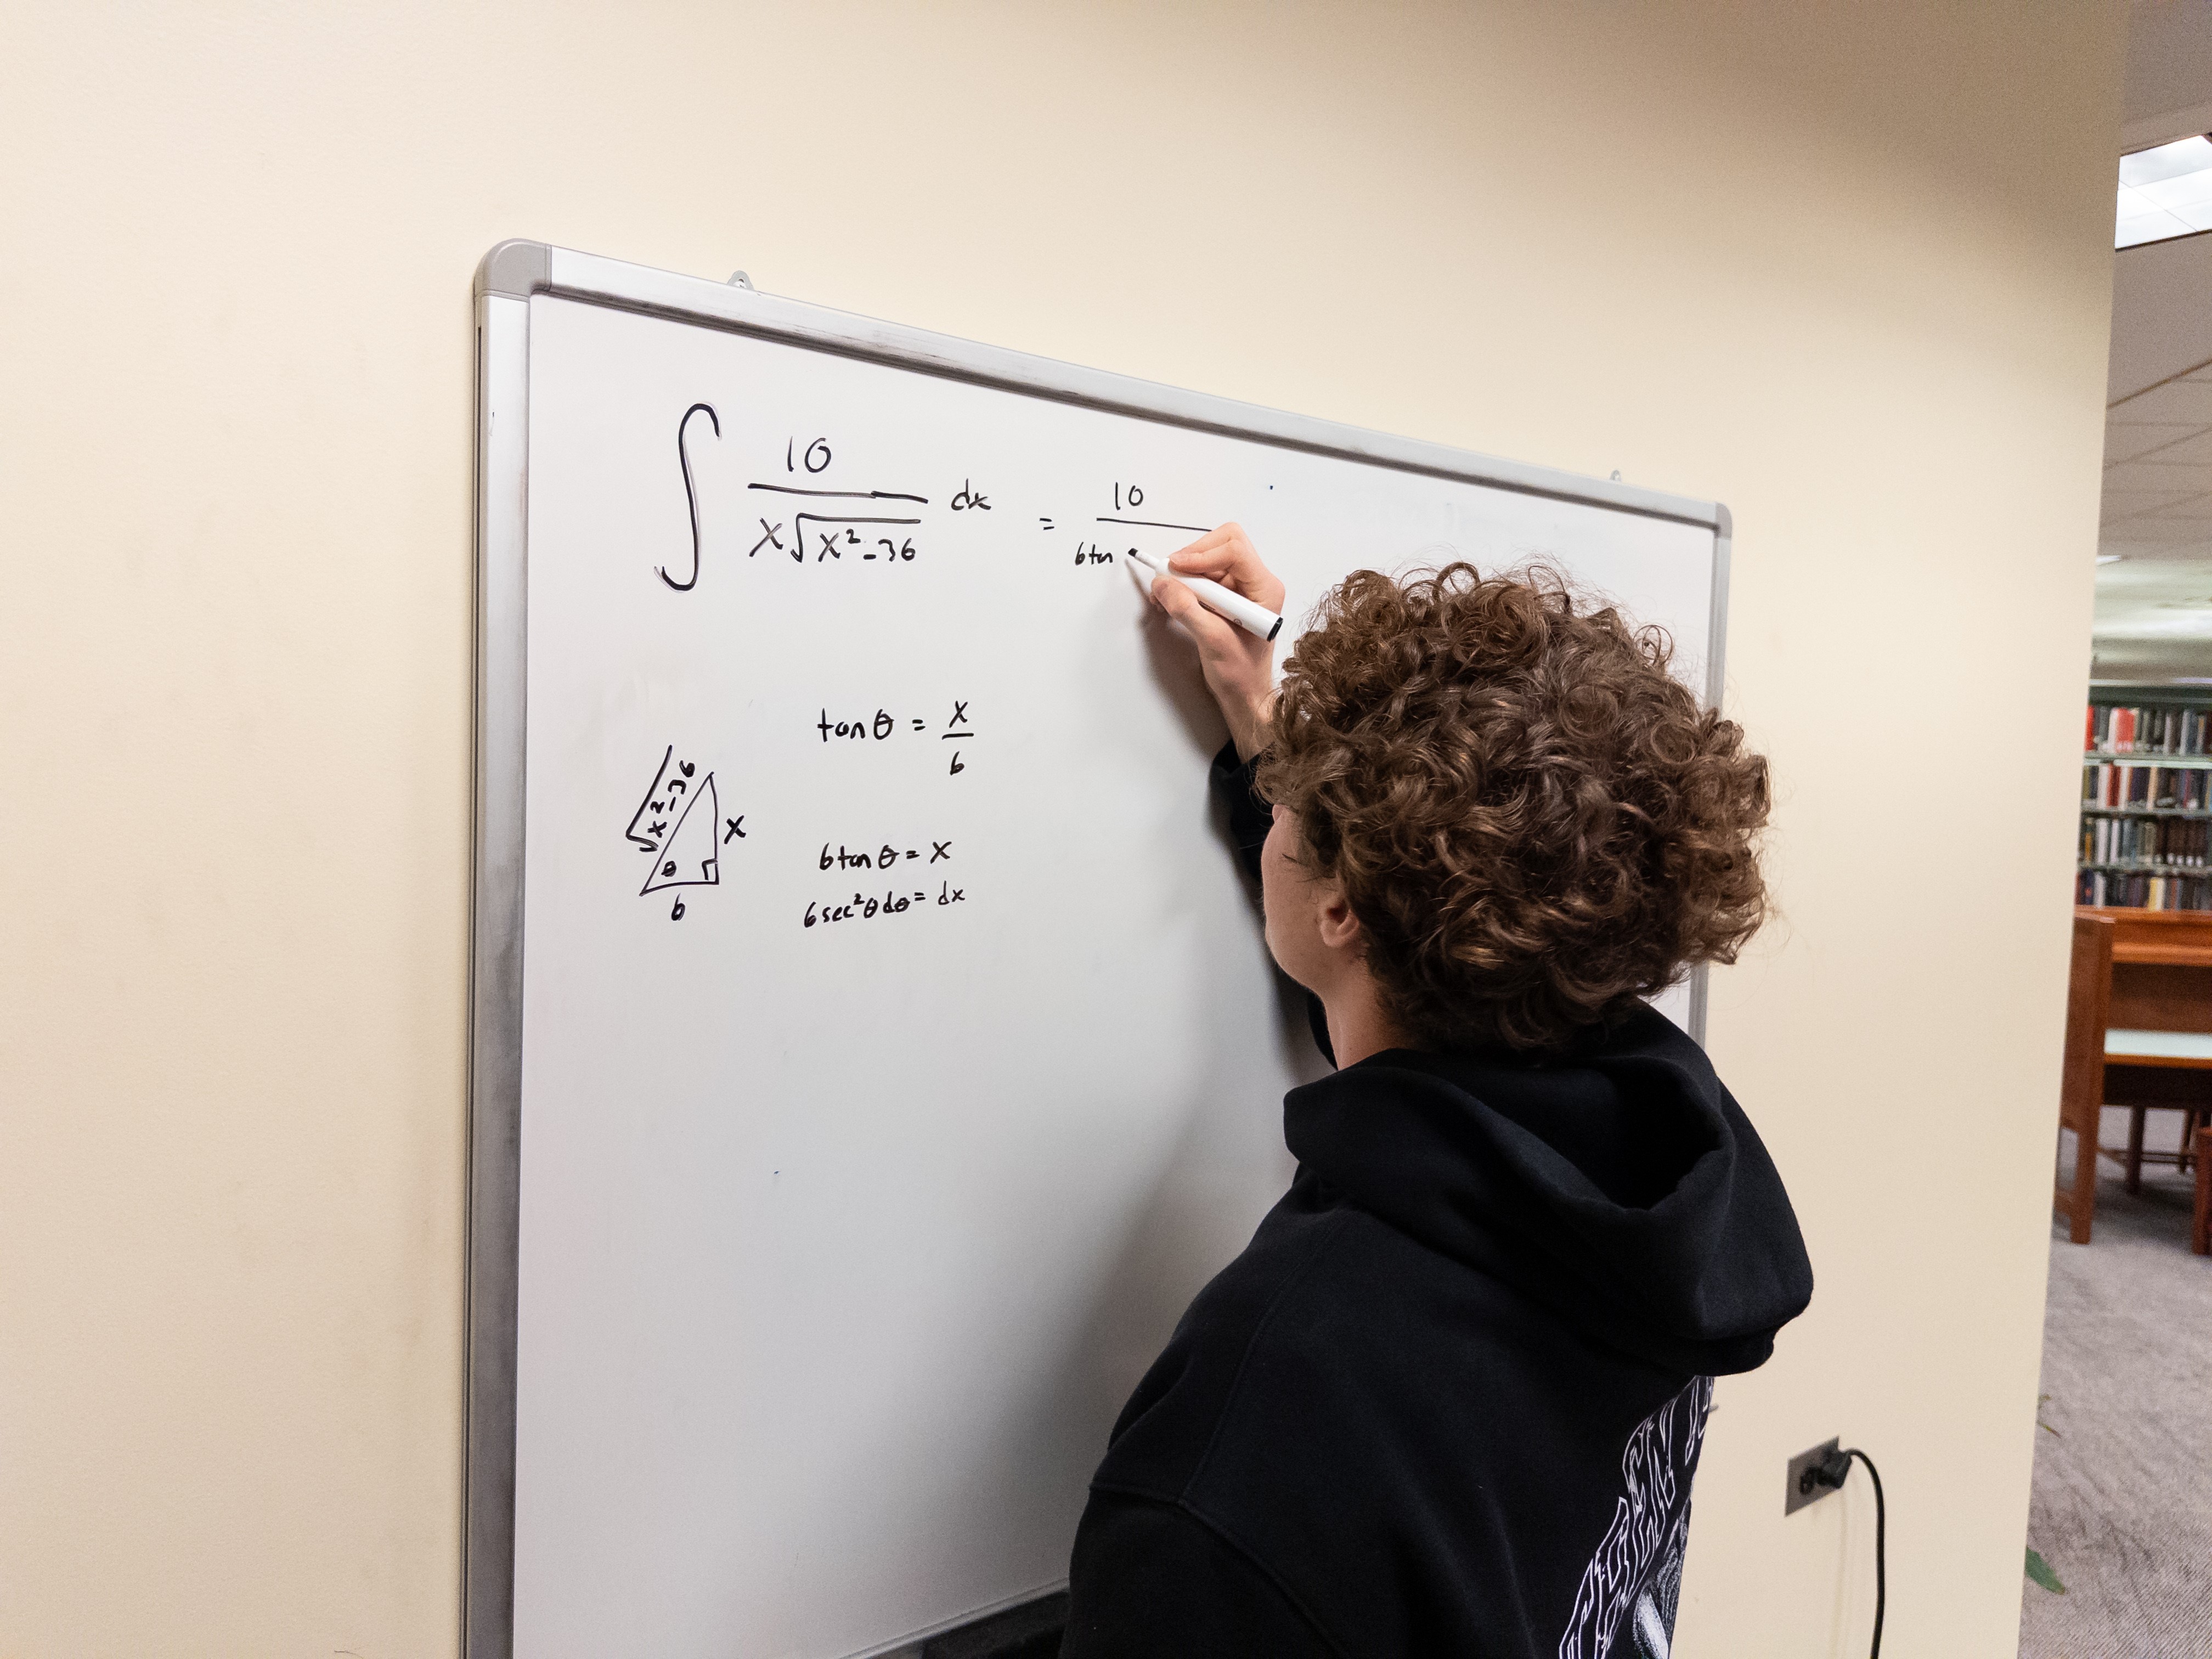 ∫ 10 / (x√(x²-36)) dx = 10 / 6tan
tanθ = x/6
√x²-36
x
θ
6
6tanθ = x
6sec²θdθ = dx